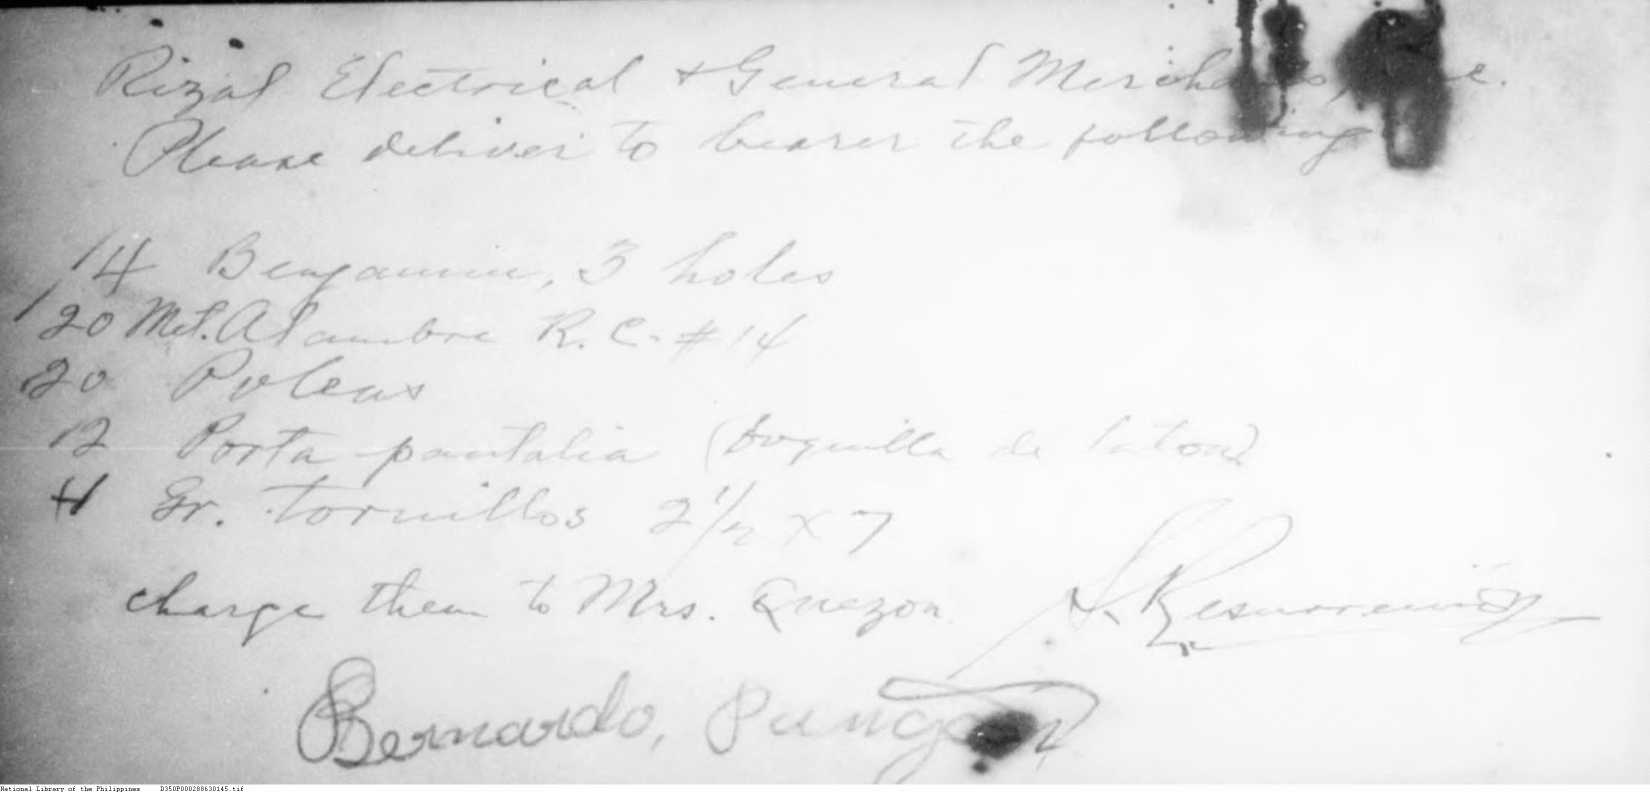 Rizal Electrical & General Merchants,
Please deliver to bearer the following
14 Benjamin, 3 holes
120 Met. Alambre R. C. #14
20 Poleas
12 Porta pantalla (boquilla de laton)
4 Gr. tornillos 2 1/2 x 7
charge them to Mrs. Quezon.
Bernardo,
National Library of the Philippines D350P000288630145.tif